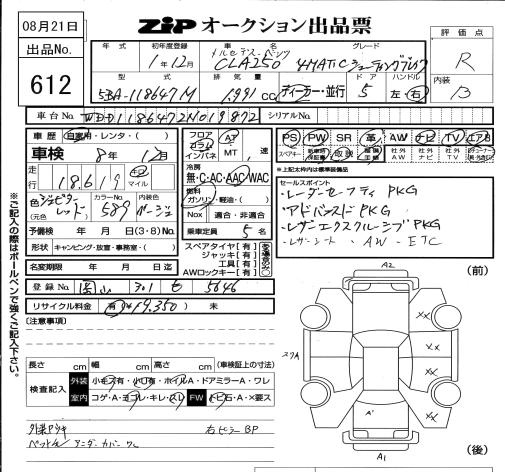 08月21日
ZIP オークション出品票
出品No.
612
年式 初年度登録 車名 グレード
1年12月 メルセデス・ベンツ CLA250 4MATIC シューティングブレーク
評価点
R
内装
B
型式 排気量 ドア ハンドル
5BA-118647M 1,991 CC ディーラー・並行 5 左・右
車台No. WDD1186472N019872 シリアルNo.
車歴 自家用・レンタ・( )
車検 8年 12月
走行 118,619 km マイル
色 ジュピターレッド (元色) カラーNo. 589 内装色 ベージュ
予備検 年 月 日 (3・8)No.
形状 キャンピング・放宣・事務室・( )
名変期限 年 月 日迄
フロア コラム インパネ AT MT 速
冷房 無・C・AC・AAC・WAC
燃料 ガソリン・軽油・( )
Nox 適合・非適合
乗車定員 5 名
スペアタイヤ[有]
ジャッキ[有]
工具[有]
AWロックキー[有]
PS PW SR 革 AW ナビ TV エアB
スペアキー 新車時保証書 取説 記録簿 社外AW 社外ナビ 社外TV
※上記太枠内は標準装備品
セールスポイント
・レーダーセーフティPKG
・アドバンスドPKG
・レザーエクスクルーシブPKG
・レザーシート ・AW ・ETC
登録No. 岡山 301 せ 5646
リサイクル料金 有(¥19,350) 未
(注意事項)
長さ cm 幅 cm 高さ cm (車検証上の寸法)
検査記入 外装 小キズ有・小凹有・ホイルA・ドアミラーA・ワレ
室内 コゲ・A・ヨゴレ・キレ・スレ FW トビ石・A・X要ス
外装アリキズ 右ピラーBP
ペットモ アンダーカバーワレ
※ご記入の際はボールペンで強くご記入下さい。
(前)
A2
スリA
XX
XX
XX
XX
A'
A1
(後)